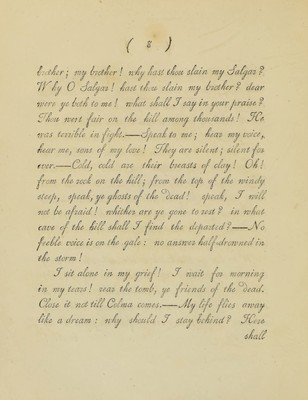 ( 8 )
brother; my brother! why hast thou slain my Salgar?
Why O Salgar! hast thou slain my brother? dear
were ye both to me! what shall I say in your praise?
Thou wert fair on the hill among thousands! He
was terrible in fight.—Speak to me; hear my voice,
hear me, sons of my love! They are silent; silent for
ever.—Cold, cold are their breasts of clay! Oh!
from the rock on the hill; from the top of the windy
steep, speak, ye ghosts of the dead! speak, I will
not be afraid! whither are ye gone to rest? in what
cave of the hill shall I find the departed?—No
feeble voice is on the gale: no answer half-drowned in
the storm!
I sit alone in my grief! I wait for morning
in my tears! rear the tomb, ye friends of the dead.
Close it not till Colma comes.—My life flies away
like a dream: why should I stay behind? Here
shall